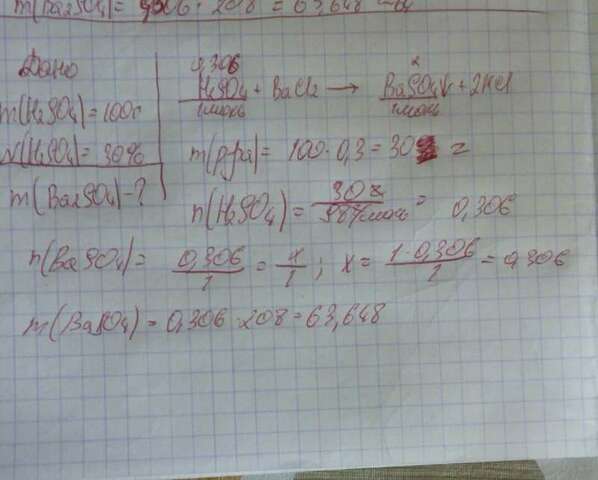 m(Ba2SO4) = 0,306 · 208 = 63,648
Дано
m(H2SO4) = 100г
W(H2SO4) = 30%
m(Ba2SO4) - ?
0,306 x
H2SO4 + BaCl2 → BaSO4↓ + 2HCl
1моль 1моль
m(р-ра) = 100 · 0,3 = 30 =
n(H2SO4) = 30г / 98г/моль = 0,306
n(BaSO4) = 0,306 / 1 = x / 1 ; x = 1 · 0,306 / 1 = 0,306
m(BaSO4) = 0,306 · 208 = 63,648